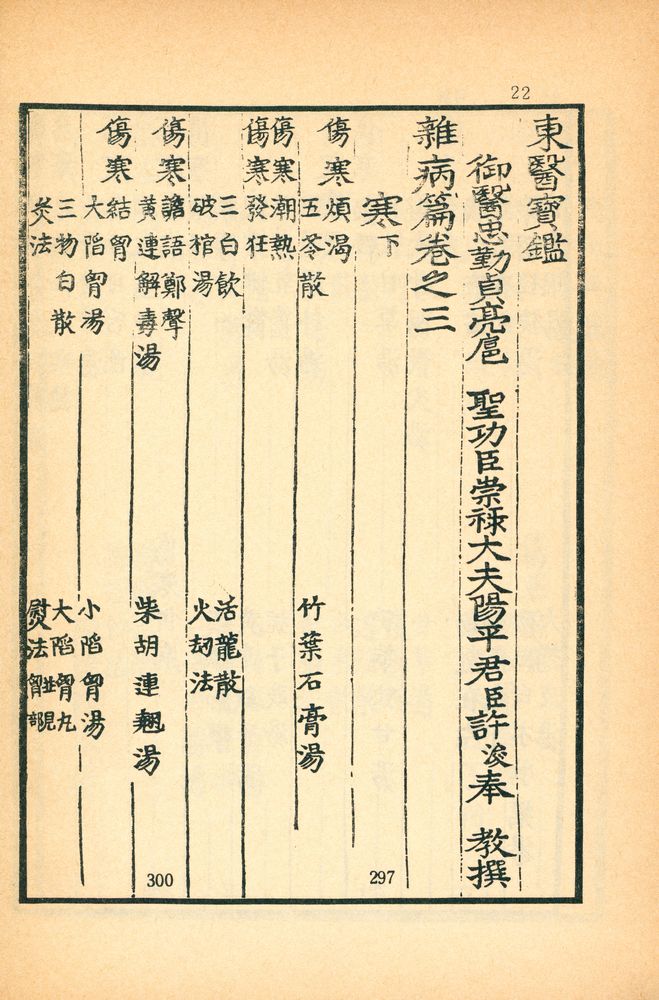 22
東醫寶鑑
雜病篇卷之三
御醫忠勤貞亮扈 聖功臣崇祿大夫陽平君臣許浚奉 教撰
寒下
傷寒煩渴
五苓散 竹葉石膏湯
傷寒潮熱
傷寒發狂
三白飲 活龍散
破棺湯 火刧法
傷寒譫語鄭聲
黃連解毒湯 柴胡連翹湯
傷寒結胷
大陷胷湯 小陷胷湯
三物白散 大陷胷丸
灸法 熨法並見胷部
297
300